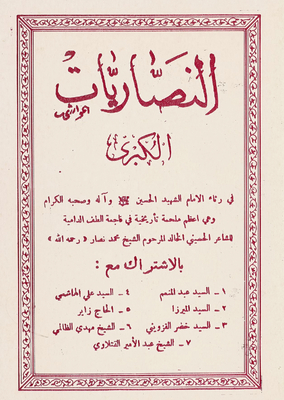 النصاريات
الكبرى
في رثاء الامام الشهيد الحسين ﷺ وآله وصحبه الكرام
وهي اعظم ملحمة تأريخية في فاجعة الطف الدامية
للشاعر الحسيني الخالد المرحوم الشيخ محمد نصار « رحمه الله »
بالاشتراك مع :
١ - السيد عبد المنعم ٤ - السيد علي الهاشمي
٢ - السيد الميرزا ٥ - الحاج زاير
٣ - السيد خضر القزويني ٦ - الشيخ مهدي الظالمي
٧ - الشيخ عبد الأمير الفتلاوي